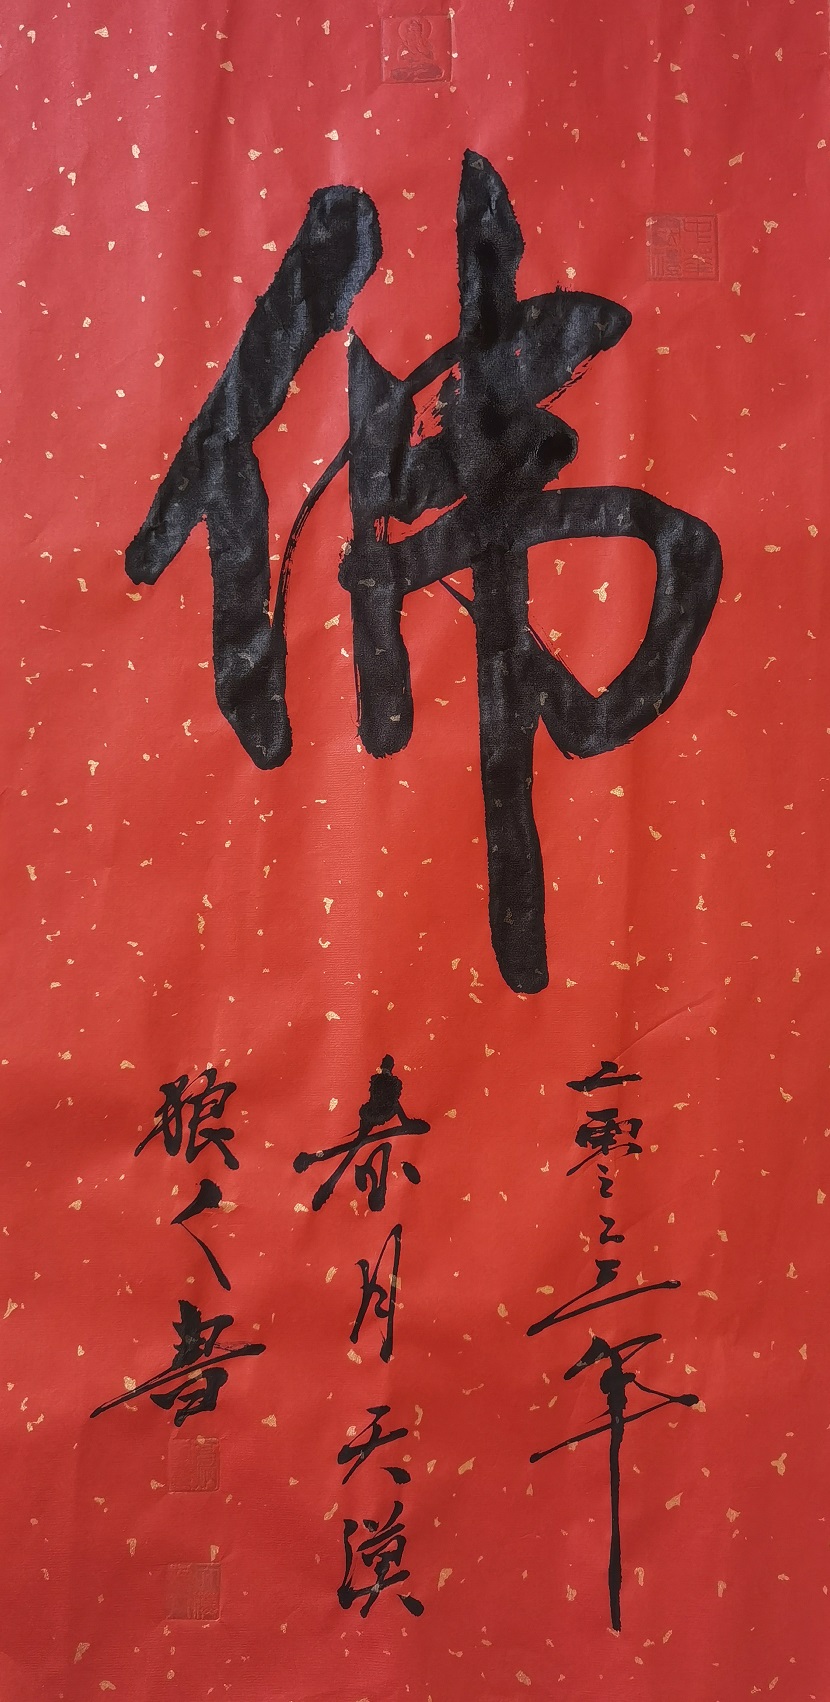 佛
二零二三年
春月天漠
狼人書